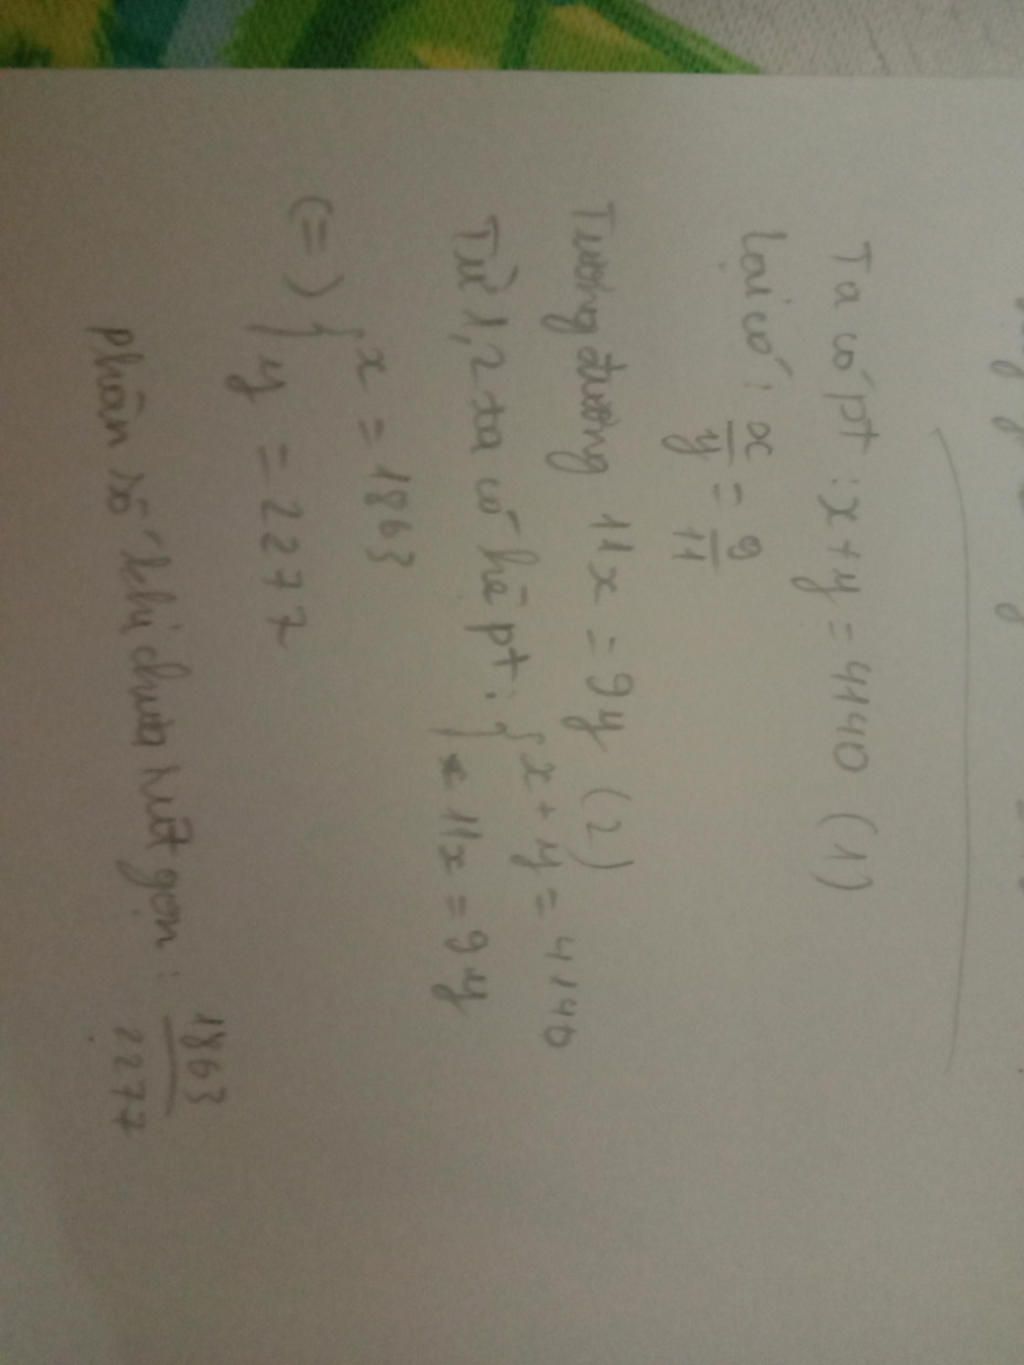 Ta có pt : x + y = 4140 (1)
lại có : x/y = 9/11
Tương đương 11x = 9y (2)
Từ 1,2 ta có hệ pt : { x + y = 4140
11x = 9y
(=) { x = 1863
y = 2277
phân số khi chưa rút gọn : 1863/2277